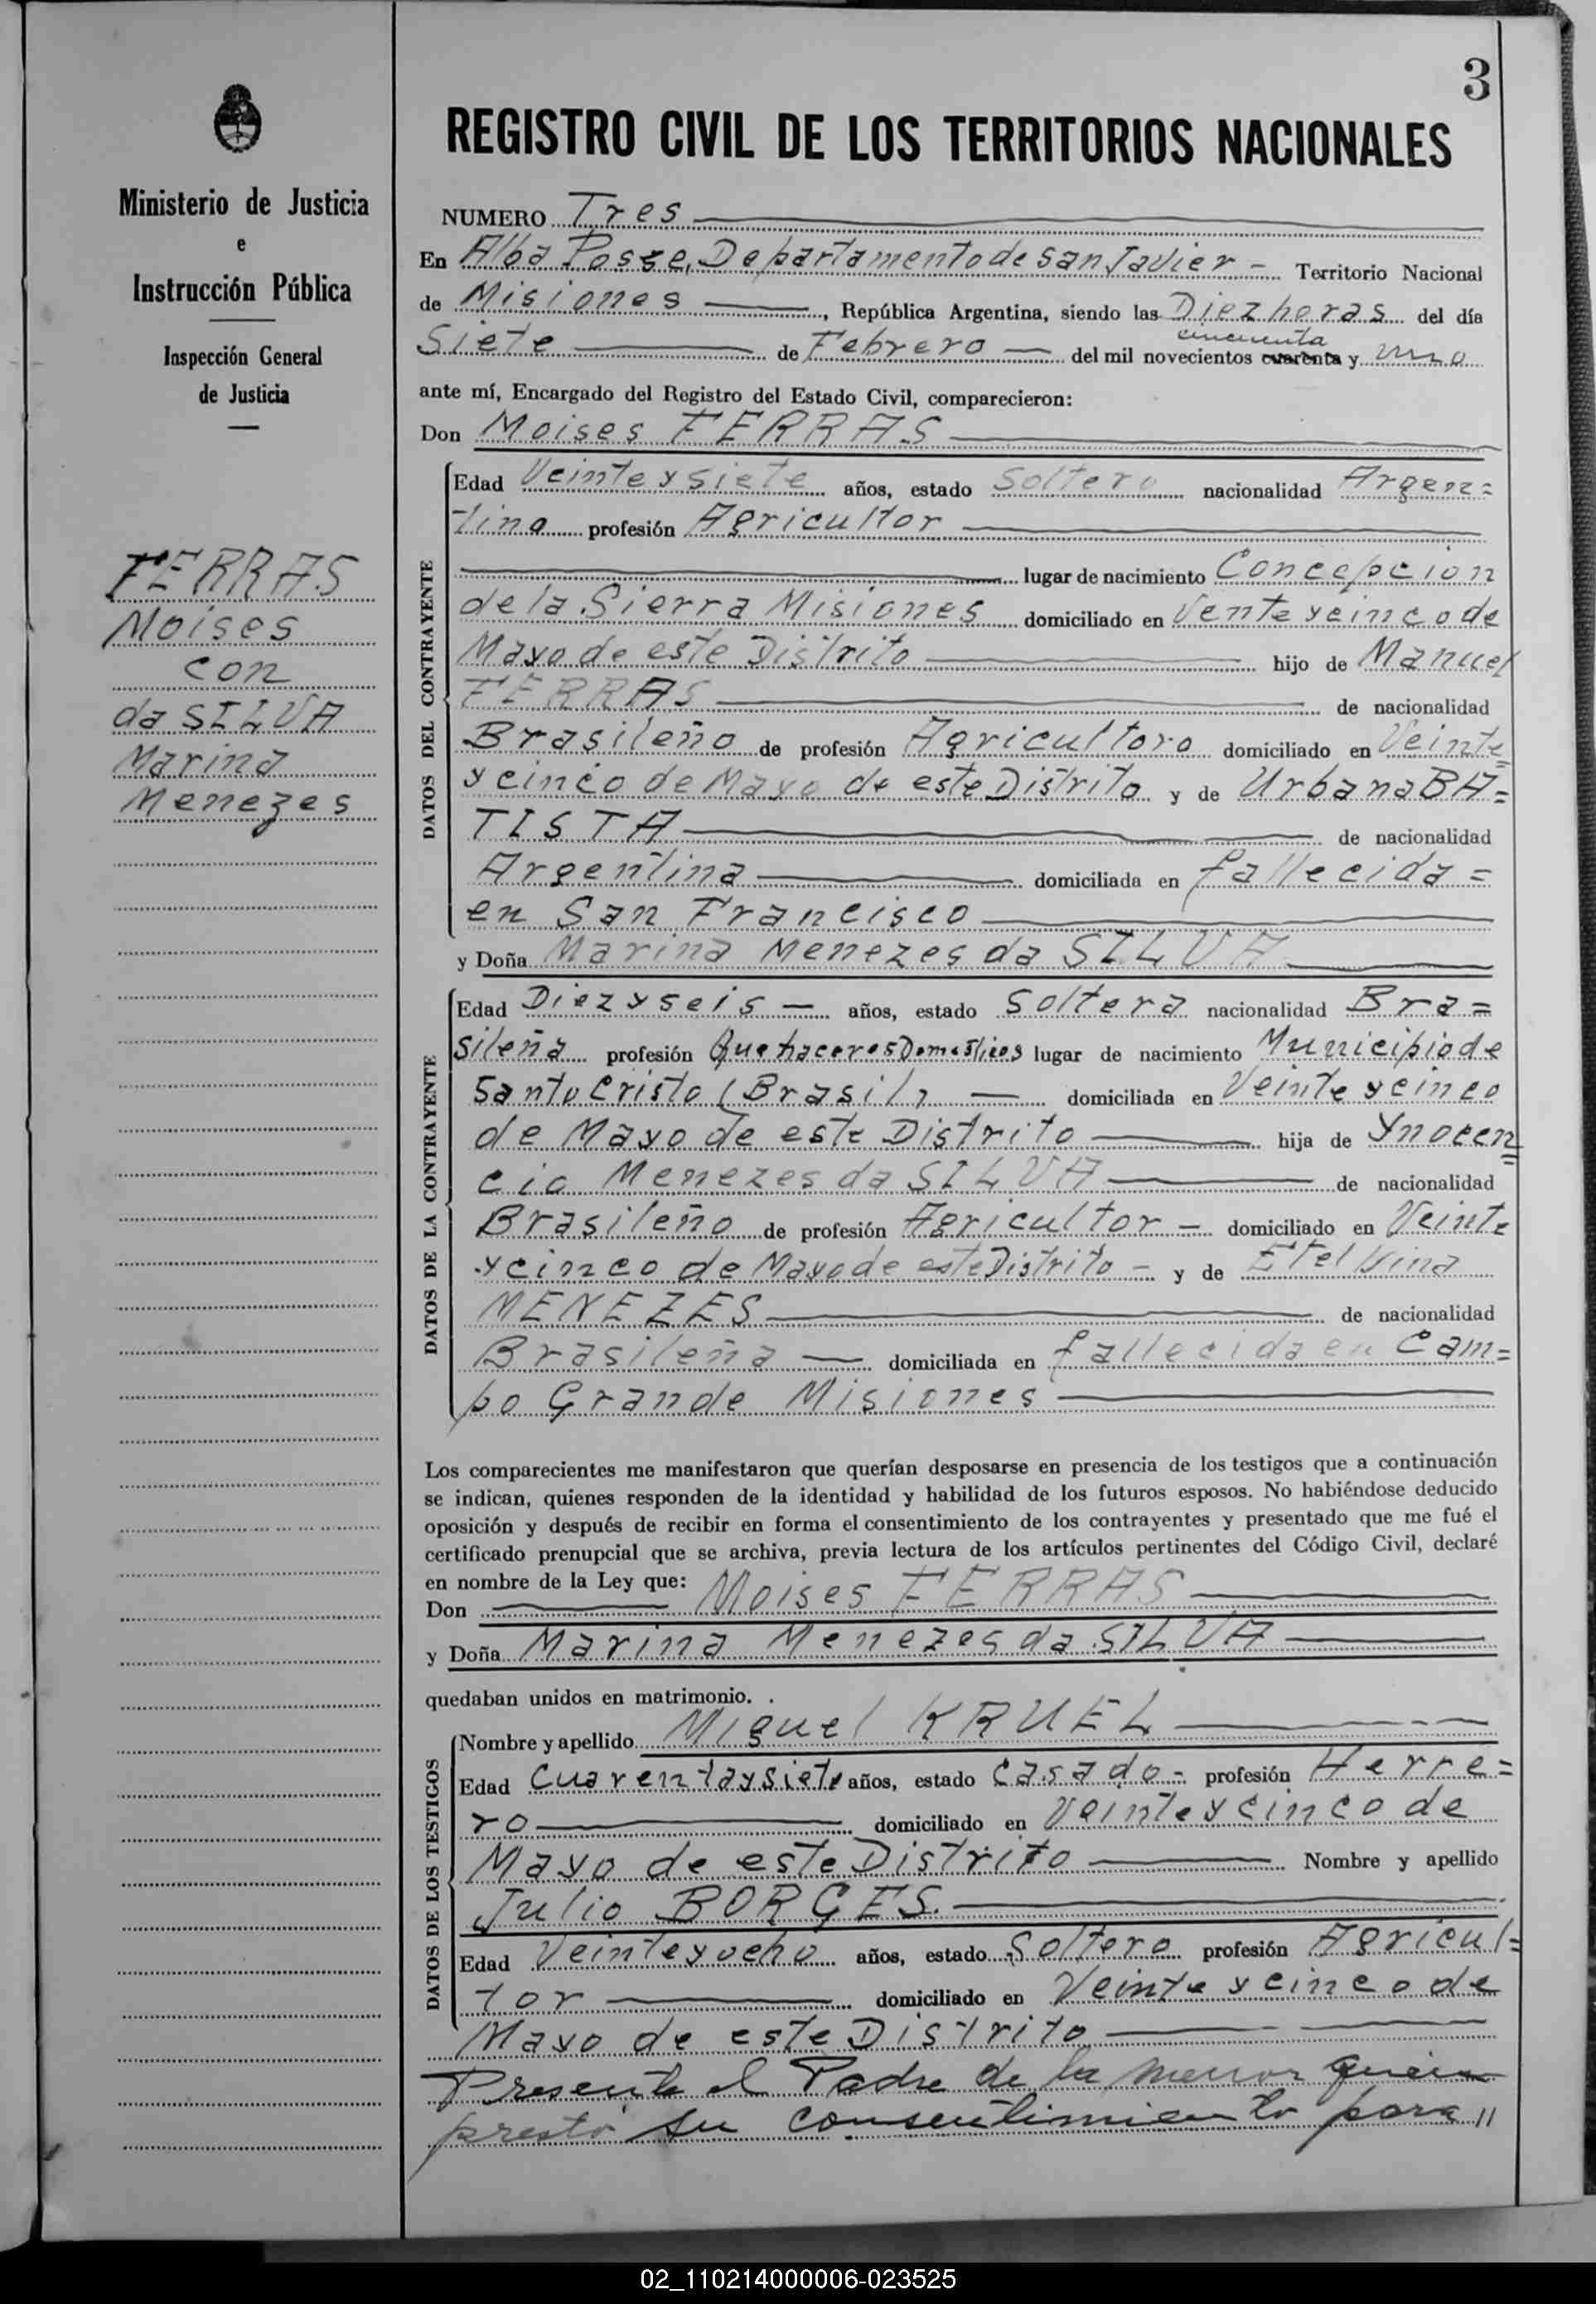 3
REGISTRO CIVIL DE LOS TERRITORIOS NACIONALES
Ministerio de Justicia
e
Instrucción Pública
Inspección General
de Justicia
FERRAS
Moises
con
da SILVA
Marina
Menezes
NUMERO Tres
En Alba Posse, Departamento de San Javier - Territorio Nacional
de Misiones, República Argentina, siendo las Diez horas del día
cincuenta
Siete de Febrero del mil novecientos cuarenta y uno
ante mí, Encargado del Registro del Estado Civil, comparecieron:
Don Moises FERRAS
DATOS DEL CONTRAYENTE
Edad Veinte y siete años, estado Soltero nacionalidad Argen=
tina profesión Agricultor
lugar de nacimiento Concepcion
de la Sierra Misiones domiciliado en Vente y cinco de
Mayo de este Distrito hijo de Manuel
FERRAS de nacionalidad
Brasileño de profesión Agricultoro domiciliado en Veinte
y cinco de Mayo de este Distrito y de Urbana BA=
TISTA de nacionalidad
Argentina domiciliada en fallecida =
en San Francisco
y Doña Marina Menezes da SILVA
DATOS DE LA CONTRAYENTE
Edad Diez y seis - años, estado Soltera nacionalidad Bra=
sileña profesión Quehaceres Domesticos lugar de nacimiento Municipio de
Santo Cristo (Brasil) - domiciliada en Veinte y cinco
de Mayo de este Distrito hija de Ynocen
cio Menezes da SILVA de nacionalidad
Brasileño de profesión Agricultor - domiciliado en Veinte
y cinco de Mayo de este Distrito - y de Etelvina
MENEZES de nacionalidad
Brasileña domiciliada en fallecida en Cam=
po Grande Misiones
Los comparecientes me manifestaron que querían desposarse en presencia de los testigos que a continuación
se indican, quienes responden de la identidad y habilidad de los futuros esposos. No habiéndose deducido
oposición y después de recibir en forma el consentimiento de los contrayentes y presentado que me fué el
certificado prenupcial que se archiva, previa lectura de los artículos pertinentes del Código Civil, declaré
en nombre de la Ley que:
Don Moises FERRAS
y Doña Marina Menezes da SILVA
quedaban unidos en matrimonio.
DATOS DE LOS TESTIGOS
Nombre y apellido Miguel KRUEL
Edad Cuarenta y siete años, estado Casado - profesión Herre=
ro domiciliado en Veinte y cinco de
Mayo de este Distrito Nombre y apellido
Julio BORGES.
Edad Veinte y ocho años, estado Soltero profesión Agricul=
tor domiciliado en Veinte y cinco de
Mayo de este Distrito
Presente el Padre de la menor quien
prestó su consentimiento para "
02_110214000006-023525